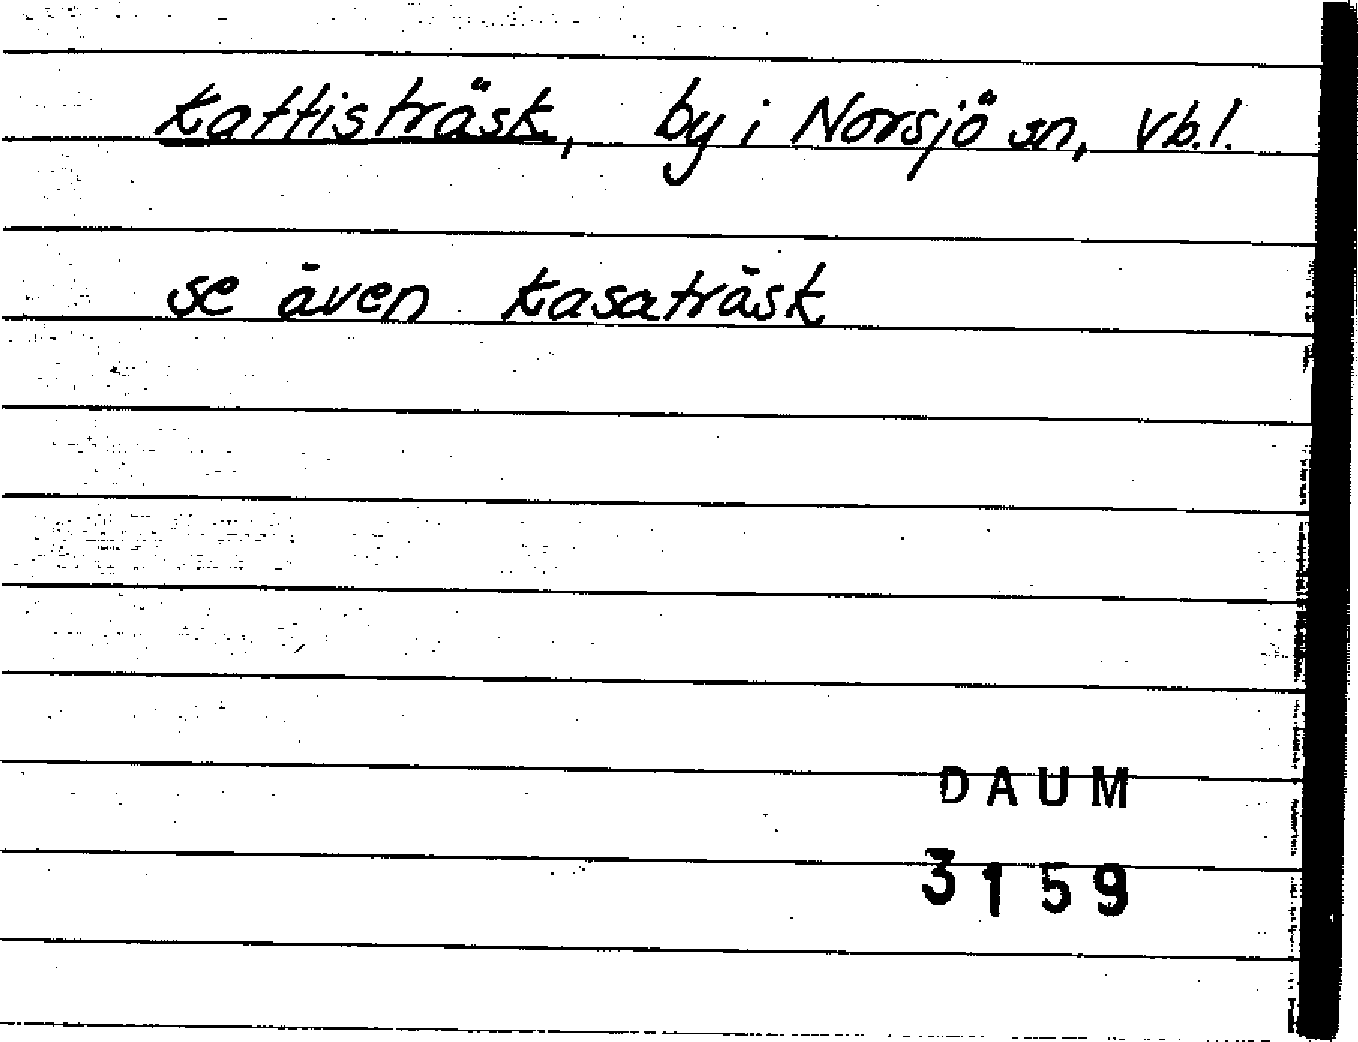 Kattisträsk, by i Norsjö sn, Vb.l.
se även Kasaträsk
DAUM
3159